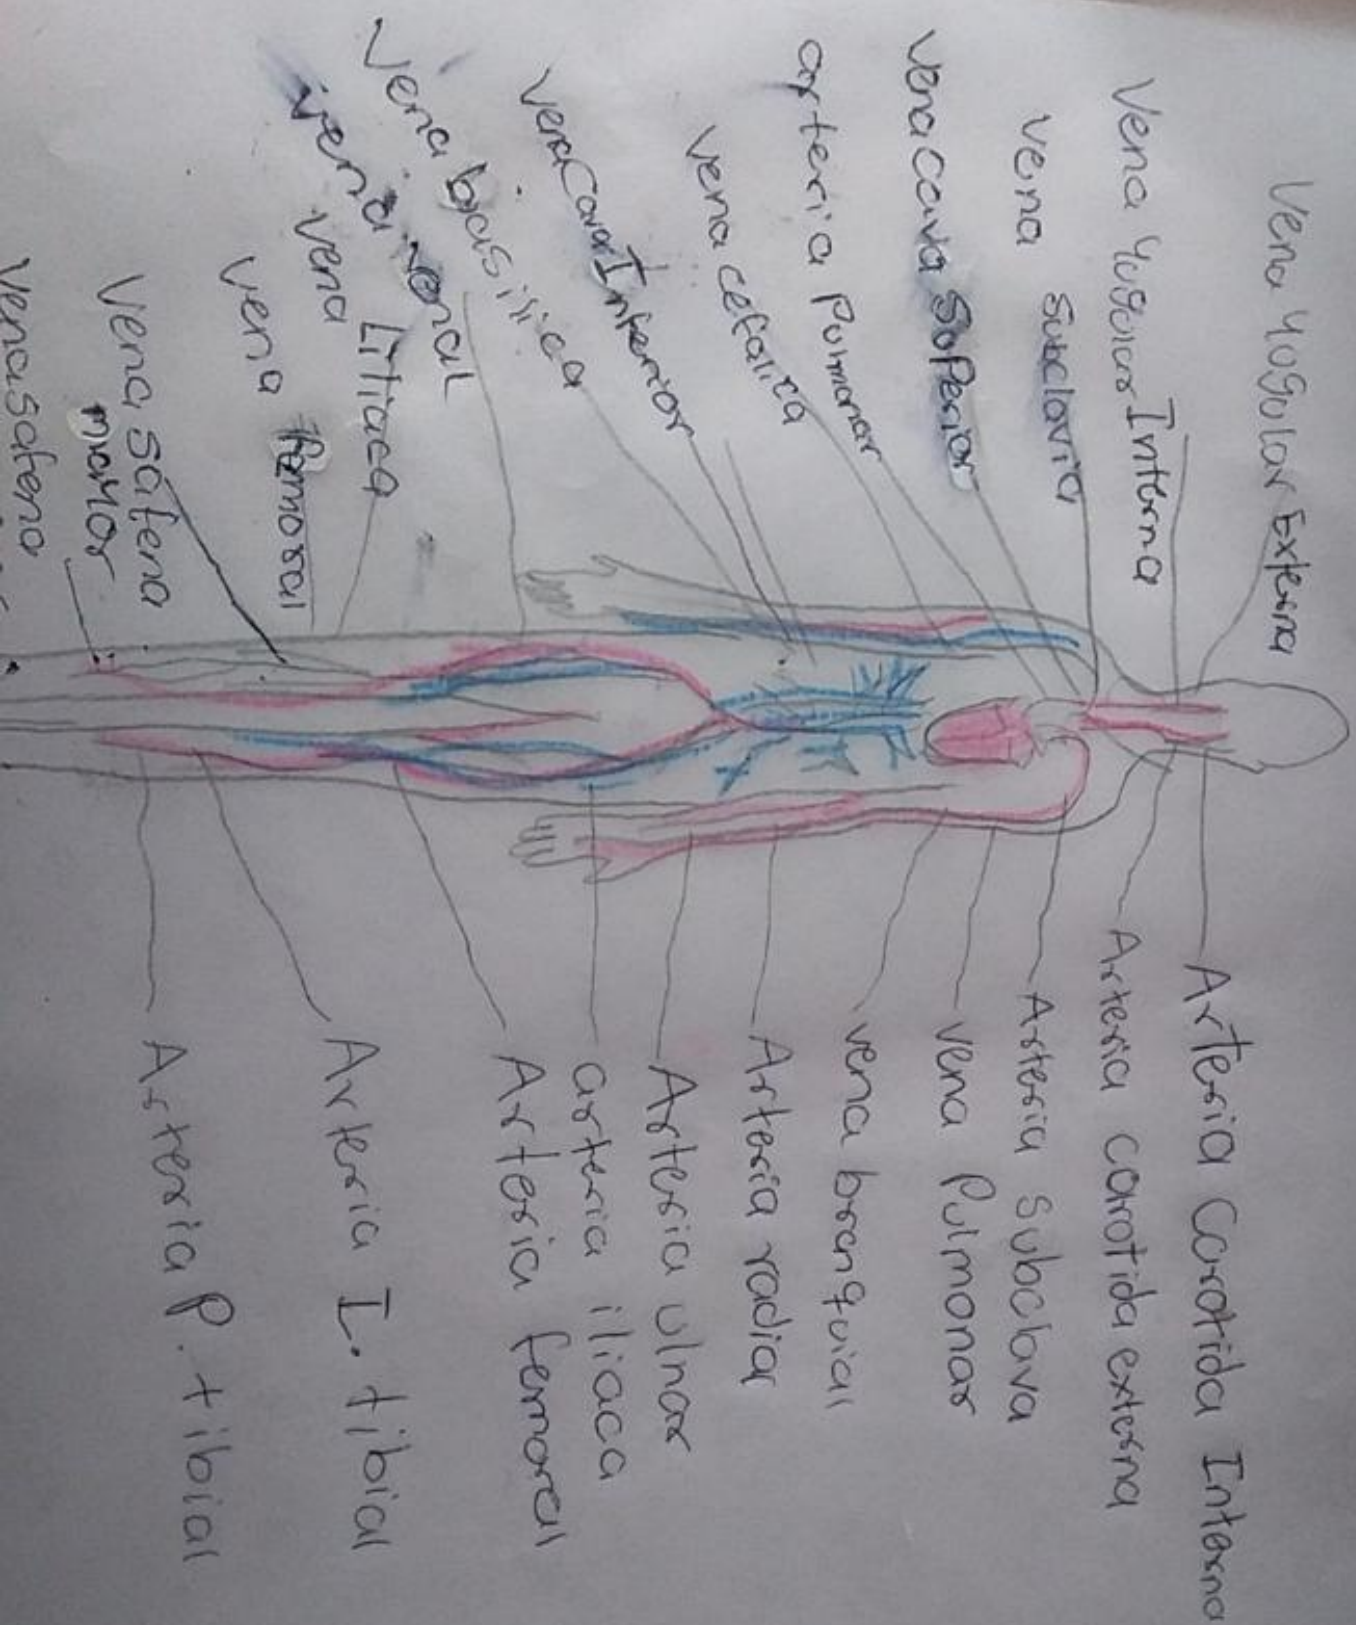 Vena Yugular Externa
Vena Yugular Interna
Vena Subclavia
Vena Cava Superior
arteria Pulmonar
Vena cefalica
Vena Cava Inferior
Vena basilica
Vena renal
Vena
Vena femoral
Vena safena
mayor
Vena safena
Arteria Carotida Interna
Arteria carotida externa
Arteria Subclava
Vena Pulmonar
vena branquial
Arteria radiar
Arteria ulnar
arteria iliaca
Arteria femoral
Arteria I. tibial
Arteria P. tibial